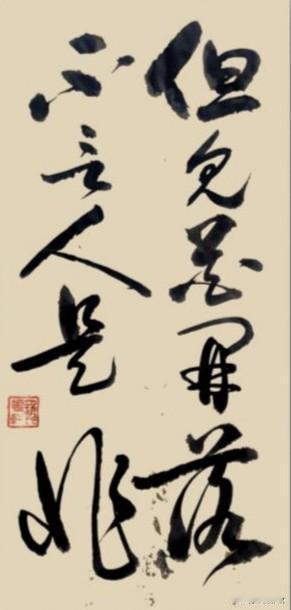 但见花开落
不言人是非